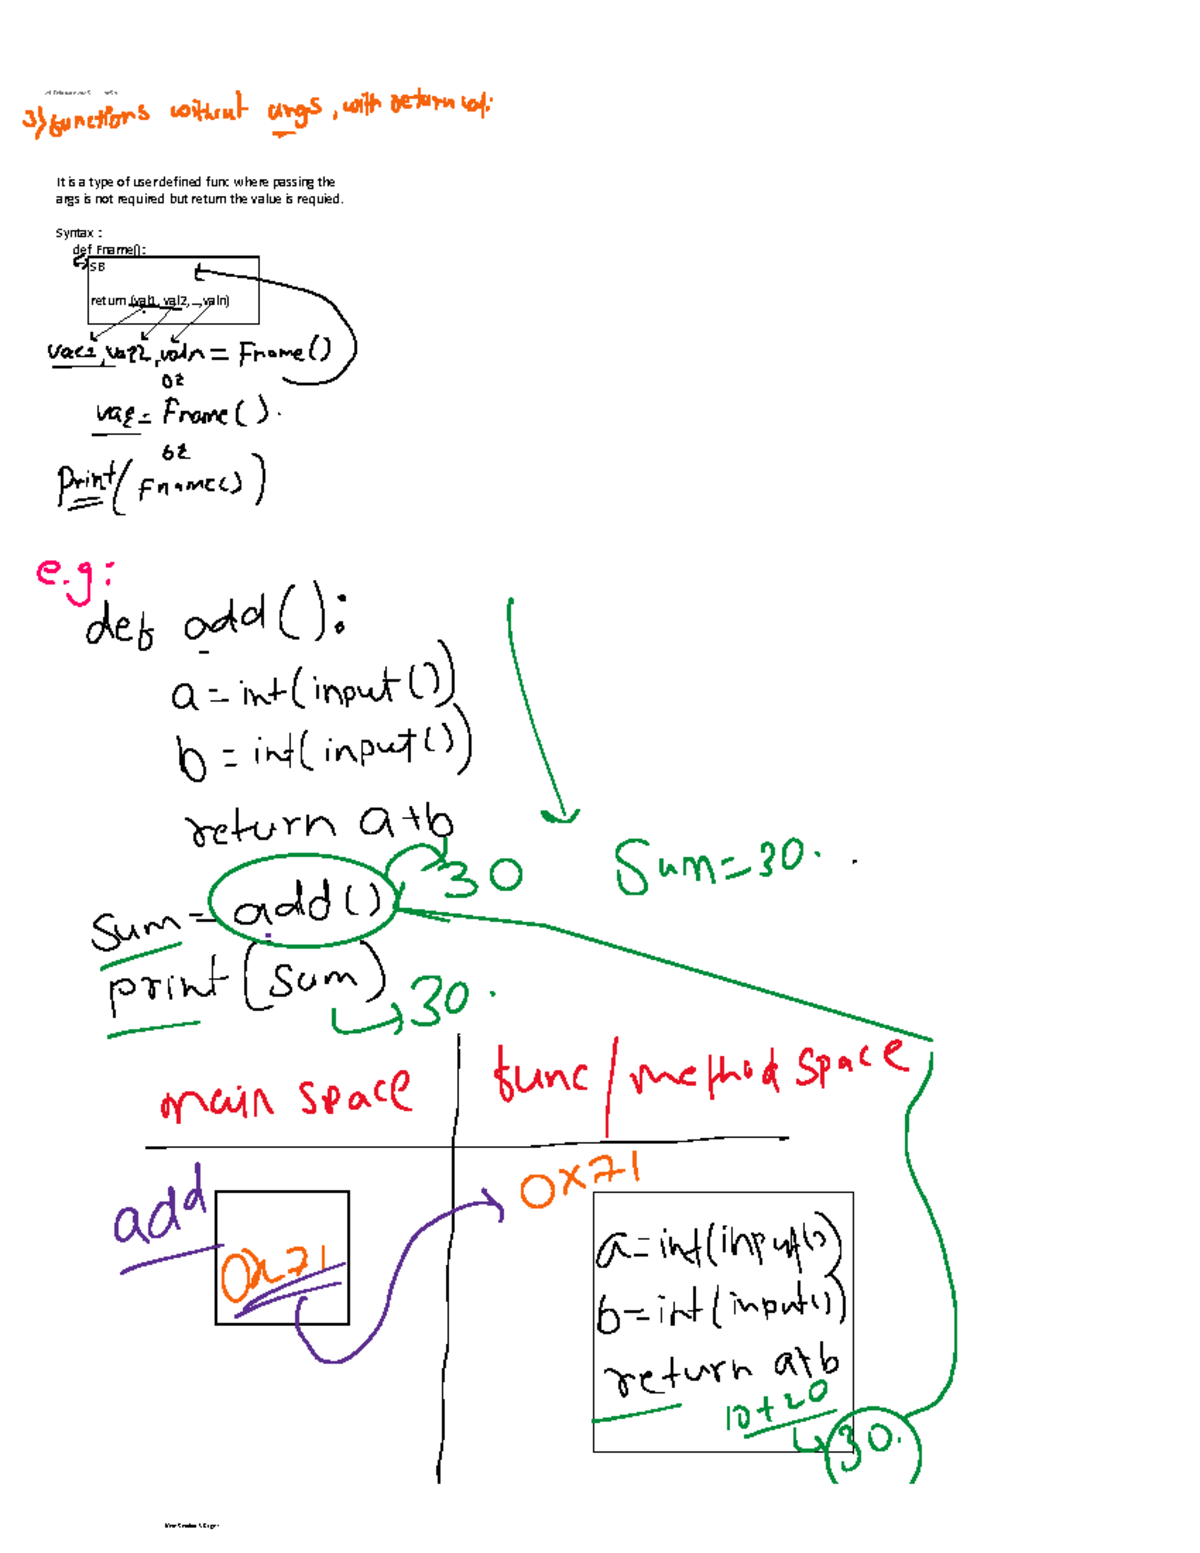 3) functions without args, with return val:
It is a type of userdefined func where passing the
args is not required but return the value is requied.
Syntax :
def Fname():
SB
return (val1, val2,...,valn)
var1, var2, valn = Fname()
or
var = Fname().
or
Print(Fname())
e.g:
def add():
a = int(input())
b = int(input())
return a+b
30
Sum = 30.
Sum = add()
print(Sum)
30.
main space
func/method space
add
0x71
0x71
a = int(input())
b = int(input())
return a+b
10+20
30.